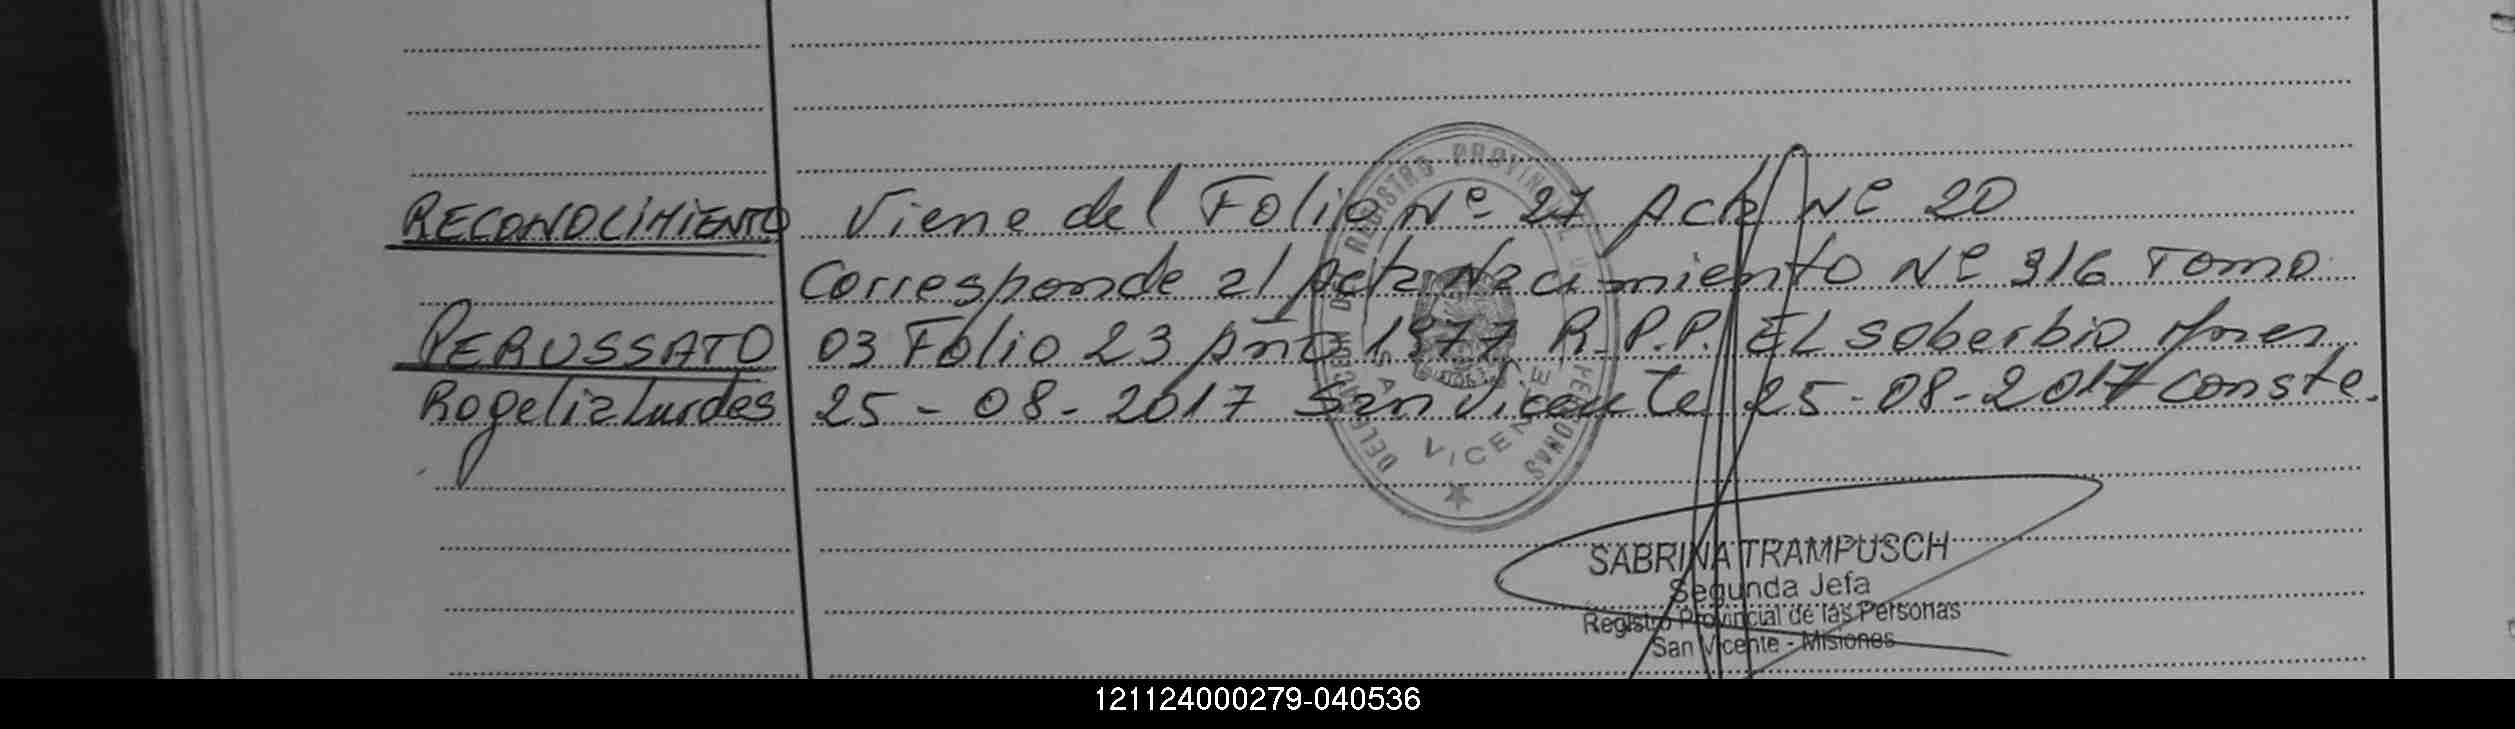 RECONOCIMIENTO Viene del Folio Nº 27 Acta Nº 20
Corresponde al Acta Nacimiento Nº 316 Tomo
PERUSSATO 03 Folio 23 Año 1977 R.P.P. EL Soberbio Mnes
Rogelia Lurdes 25-08-2017 San Vicente 25-08-2017 Conste.
DELEGACION DEL REGISTRO PROVINCIAL DE LAS PERSONAS
SAN VICENTE
SABRINA TRAMPUSCH
Segunda Jefa
Registro Provincial de las Personas
San Vicente - Misiones
121124000279-040536